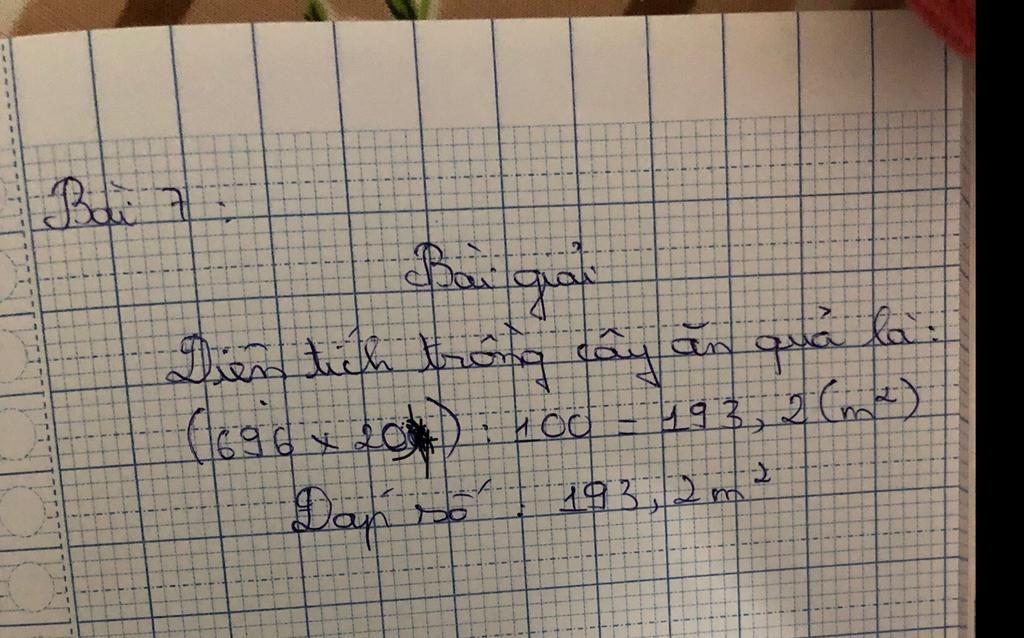 Bài 7 :
Bài giải
Diện tích trồng cây ăn quả là :
(696 x 20) : 100 = 193,2 (m²)
Đáp số : 193,2 m²